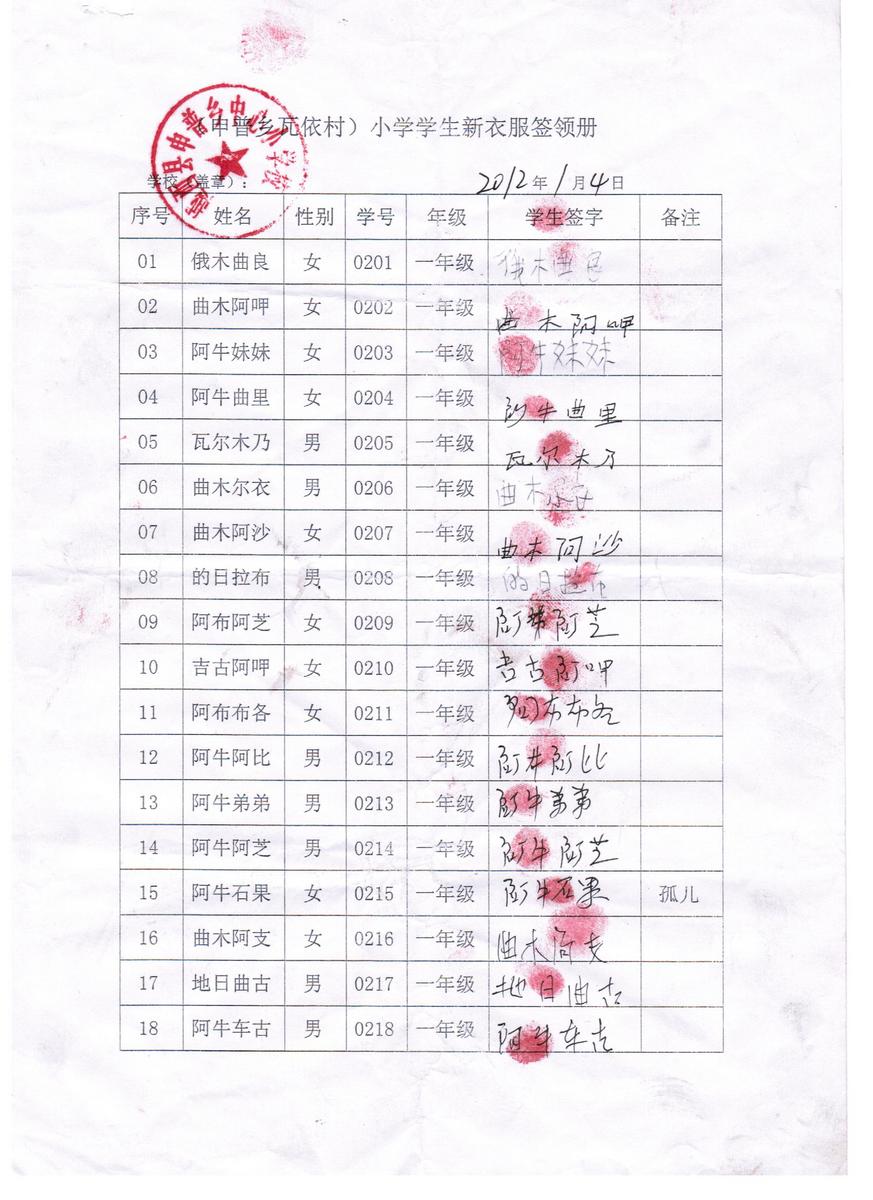 （申普乡瓦依村）小学学生新衣服签领册
学校（盖章）： 2012年1月4日
县申普乡中心小学校
序号 姓名 性别 学号 年级 学生签字 备注
01 俄木曲良 女 0201 一年级 俄木曲
02 曲木阿呷 女 0202 一年级 曲木阿呷
03 阿牛妹妹 女 0203 一年级 阿牛妹妹
04 阿牛曲里 女 0204 一年级 阿牛曲里
05 瓦尔木乃 男 0205 一年级 瓦尔木乃
06 曲木尔衣 男 0206 一年级 曲木尔衣
07 曲木阿沙 女 0207 一年级 曲木阿沙
08 的日拉布 男 0208 一年级 的日
09 阿布阿芝 女 0209 一年级 阿 阿芝
10 吉古阿呷 女 0210 一年级 吉古阿呷
11 阿布布各 女 0211 一年级 阿布布各
12 阿牛阿比 男 0212 一年级 阿牛阿比
13 阿牛弟弟 男 0213 一年级 阿牛弟弟
14 阿牛阿芝 男 0214 一年级 阿牛阿芝
15 阿牛石果 女 0215 一年级 阿牛石果 孤儿
16 曲木阿支 女 0216 一年级 曲木阿支
17 地日曲古 男 0217 一年级 地日曲古
18 阿牛车古 男 0218 一年级 阿牛车古